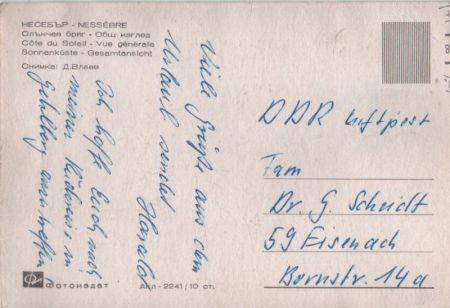 НЕСЕБЪР - NESSÈBRE
Слънчев бряг - Общ изглед
Côte du Soleil - Vue générale
Sonnenküste - Gesamtansicht
Снимка: Д.Влаев
Viele Grüße aus dem
Urlaub sendet
Harald
Ich hoffe Euch nach
meiner Rückreise in
anzutreffen
DDR Luftpost
Fam
Dr. G. Scheidt
59 Eisenach
Bornstr. 14a
Фотоиздат
Акл - 2241/10 ст.